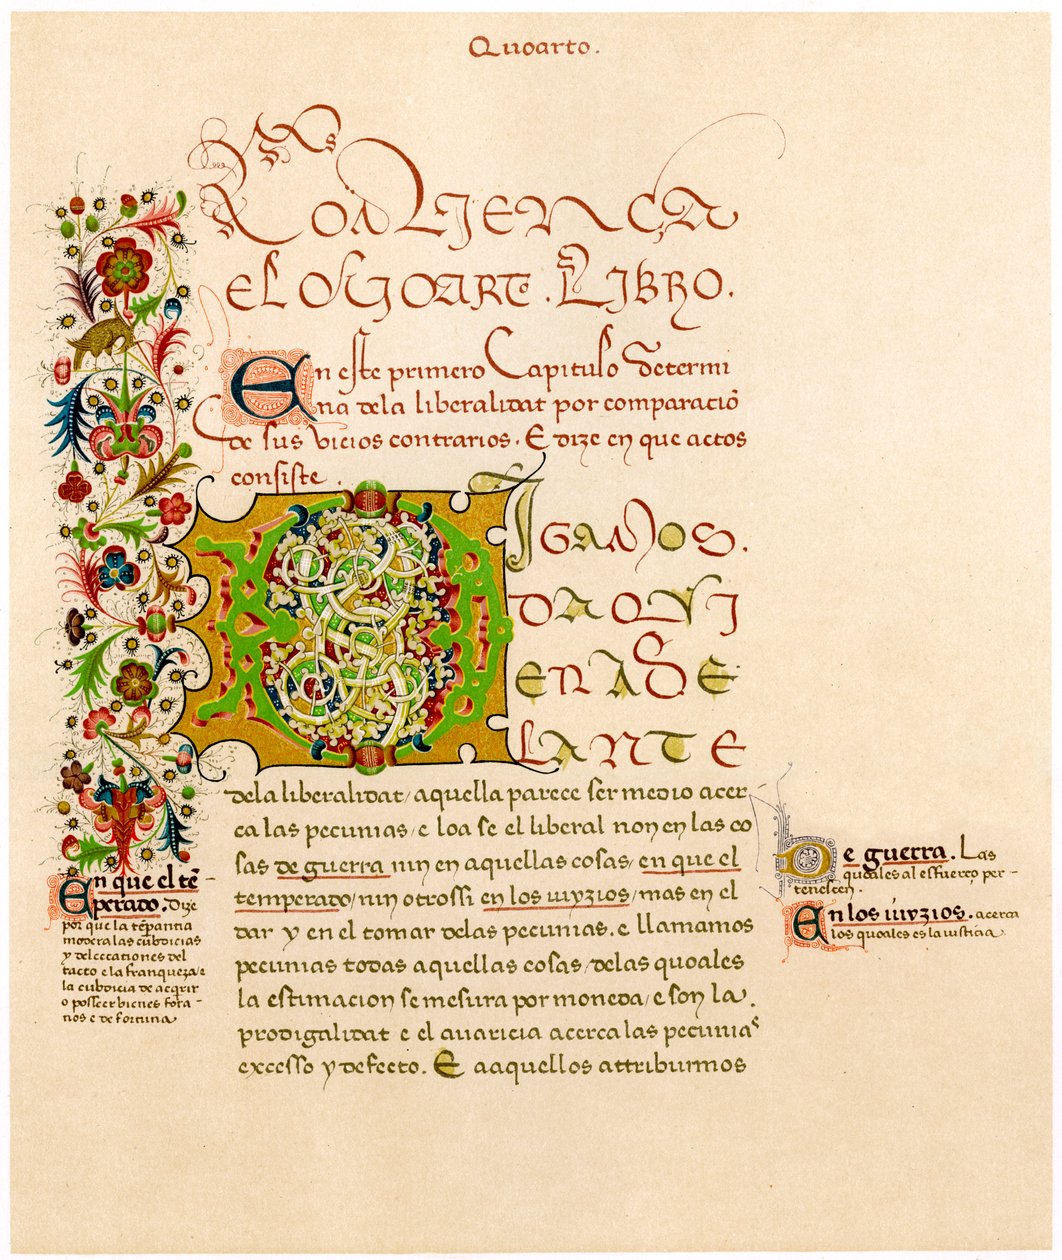 Quoarto.
Comiença
el Quoarto. Libro.
En este primero Capitulo determi
na dela liberalidat por comparació
de sus vicios contrarios. E dize en que actos
consiste.
Digamos.
daqvi
enade
lante
dela liberalidat/aquella parece ser medio acer-
ca las pecunias/e loa se el liberal non en las co
sas de guerra nin en aquellas cosas/en que el
temperado/nin otrossi en los iuyzios/mas en el
dar y en el tomar delas pecunias. e llamamos
pecunias todas aquellas cosas/delas quoales
la estimacion se mesura por moneda/e son la
prodigalidat e el auaricia acerca las pecunias
excesso y defecto. E aaquellos attribuimos
En que el tẽ-
perado. Dize
por que la tẽprantia
modera las cubdicias
y delectationes del
tacto e la franqueza/e
la cubdicia de acqrir
o posseer bienes fora-
nos e de fortuna
De guerra. Las
quoales al esfuerço per-
tenescen.
En los iuyzios. acerca
los quoales es la iusticia